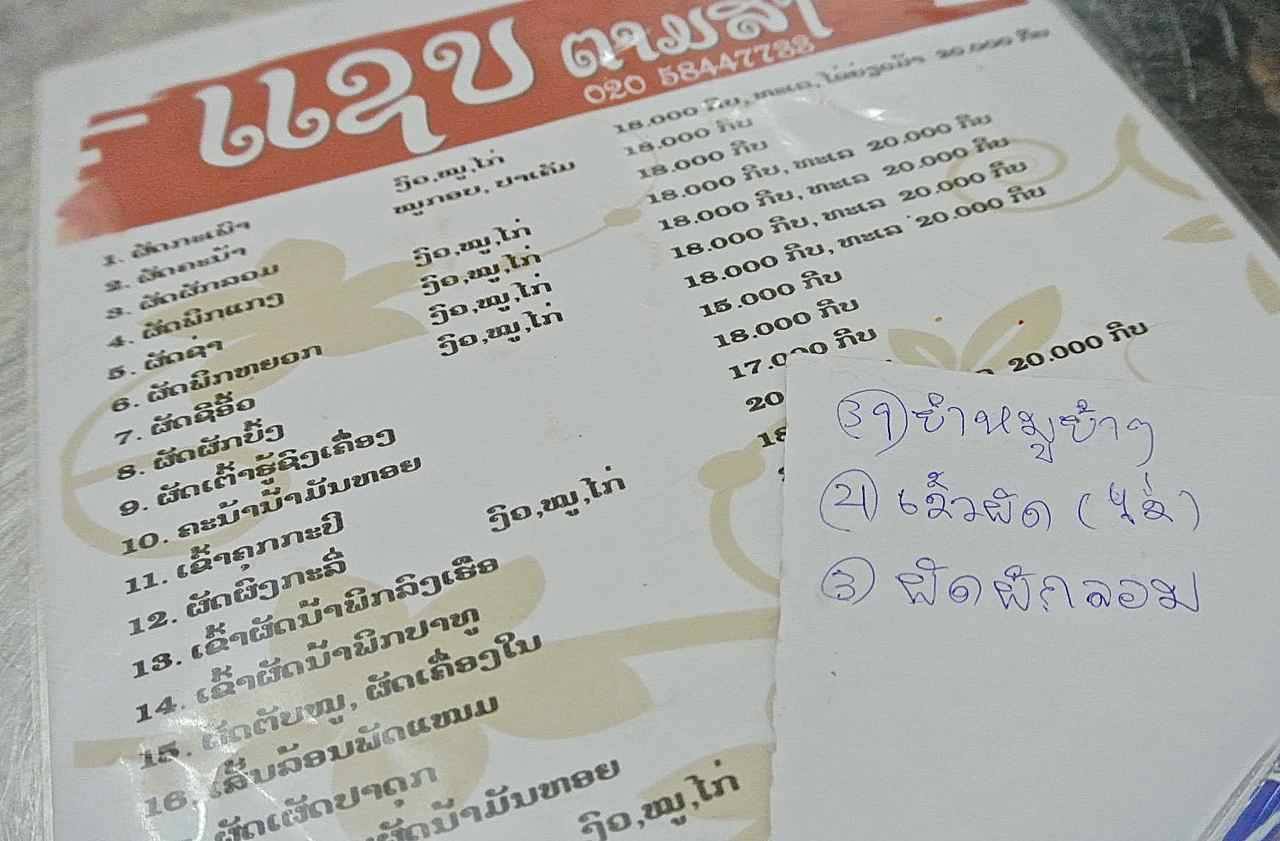 ແຊບ ຕາມສັ
020
1. ຜັດກະເພົາ ງົວ,ໝູ,ໄກ່ 18.000 ກີບ, ທະເລ, ໄຂ່ຢ່ຽວມ້າ 20.000 ກີບ
2. ຜັດຄະນ້າ ໝູກອບ, ປາເຄັມ 18.000 ກີບ
3. ຜັດຜັກລວມ 18.000 ກີບ
4. ຜັດພິກແກງ ງົວ,ໝູ,ໄກ່ 18.000 ກີບ, ທະເລ 20.000 ກີບ
5. ຜັດຊ່າ ງົວ,ໝູ,ໄກ່ 18.000 ກີບ, ທະເລ 20.000 ກີບ
6. ຜັດພິກຫຍວກ ງົວ,ໝູ,ໄກ່ 18.000 ກີບ, ທະເລ 20.000 ກີບ
7. ຜັດຊີອິ້ວ ງົວ,ໝູ,ໄກ່ 18.000 ກີບ, ທະເລ 20.000 ກີບ
8. ຜັດຜັກບົ້ງ 15.000 ກີບ
9. ຜັດເຕົ້າຮູ້ຊົງເຄື່ອງ 18.000 ກີບ
10. ຄະນ້ານ້ຳມັນຫອຍ 17.000 ກີບ
11. ເຂົ້າຄຸກກະປິ 20
12. ຜັດຜົງກະລີ່ ງົວ,ໝູ,ໄກ່ 18 20.000 ກີບ
13. ເຂົ້າຜັດນ້ຳພິກລົງເຮືອ
14. ເຂົ້າຜັດນ້ຳພິກປາທູ
15. ຜັດຕັບໝູ, ຜັດເຄື່ອງໃນ
16. ເສັ້ນລ້ອນພັດແໜມ
ຜັດເຜັດປາດຸກ
ຜັດນ້ຳມັນຫອຍ ງົວ,ໝູ,ໄກ່
ຍຳຫມູຍ້າງ
ເຂົ້າຜັດ (ໄຂ່)
3 ຜັດຜັກລວມ